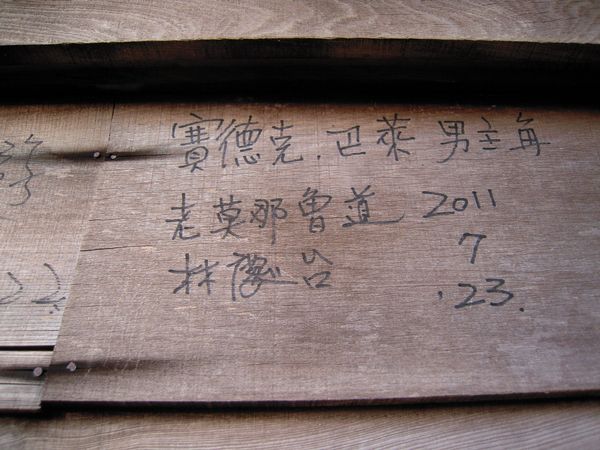 賽德克.巴萊 男主角
老莫那魯道 2011
林慶台 7
.23.
22